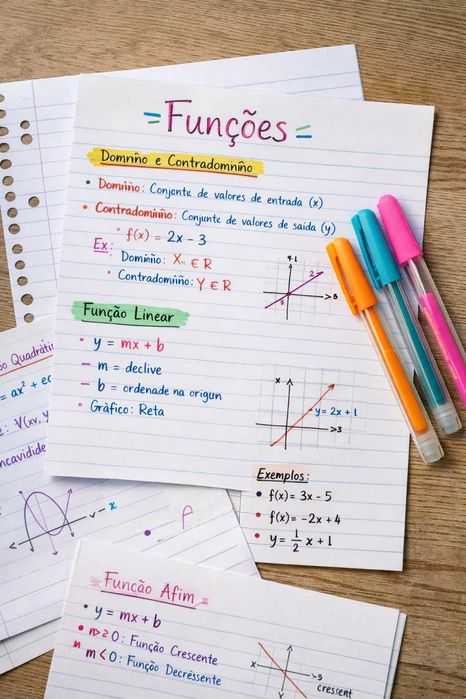 Funções
Domnĩno e Contradomnĩno
• Domiıno: Conjente de valores de entrada (x)
• Contradomiĩno: Conjunte de valores de saida (y)
• f(x) = 2x - 3
Ex:
Domiĩno: X ∈ R
• Contradomiĩno: Y ∈ R
Função Linear
• y = mx + b
– m = declive
– b = ordenade na origun
• Gràfico: Reta
y = 2x + 1
Exemplos:
• f(x) = 3x - 5
• f(x) = -2x + 4
• y = 1/2 x + 1
ão Quadráti
= ax² + e
oncavidide
Funcão Afim
• y = mx + b
: Função Crescente
m < 0: Função Decrèssente
crescent